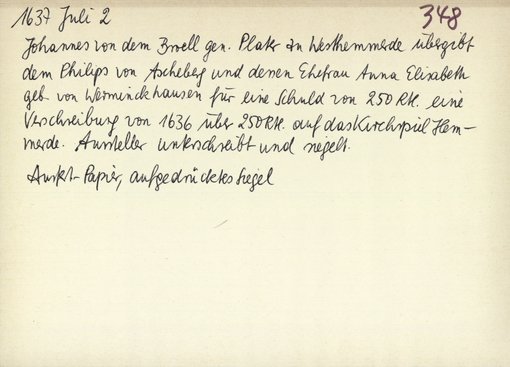 1637 Juli 2 348
Johannes von dem Broell gen. Plater zu Westhemmerde übergibt
dem Philips von Ascheberg und dessen Ehefrau Anna Elisabeth
geb. von Werminckhausen für eine Schuld von 250 Rtl. eine
Verschreibung von 1636 über 250 Rtl. auf das Kirchspiel Hem-
merde. Aussteller unterschreibt und siegelt.
Ausf.- Papier, aufgedrücktes Siegel